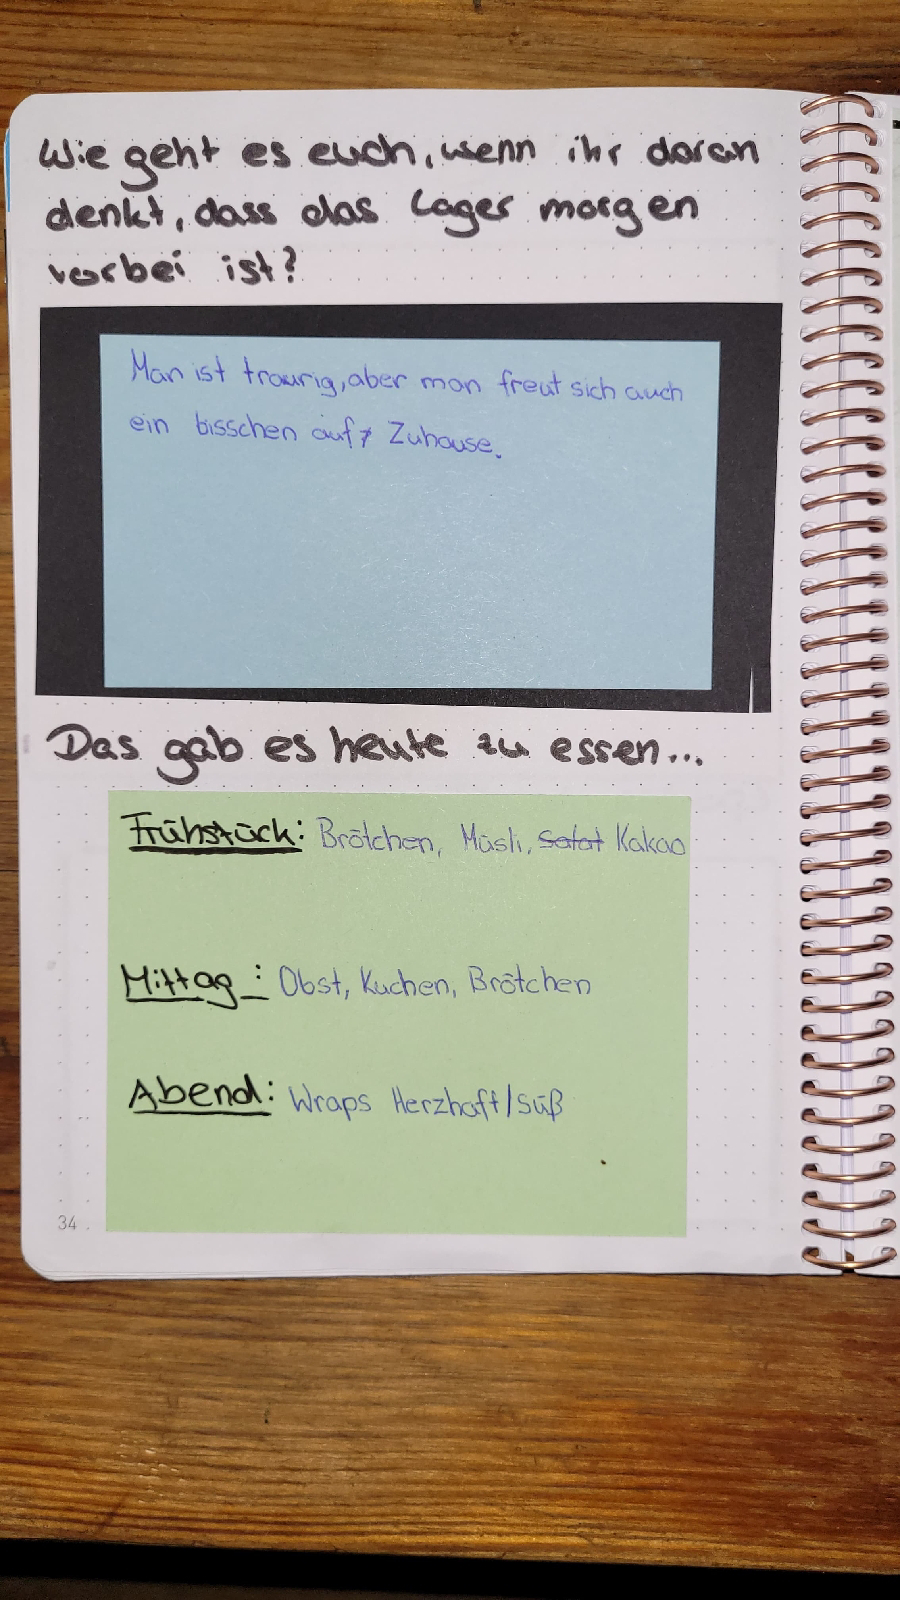 Wie geht es euch, wenn ihr daran
denkt, dass das Lager morgen
vorbei ist?
Man ist traurig, aber man freut sich auch
ein bisschen auf Zuhause.
Das gab es heute zu essen...
Frühstück: Brötchen, Müsli, Kakao
Mittag: Obst, Kuchen, Brötchen
Abend: Wraps Herzhaft/süß
34